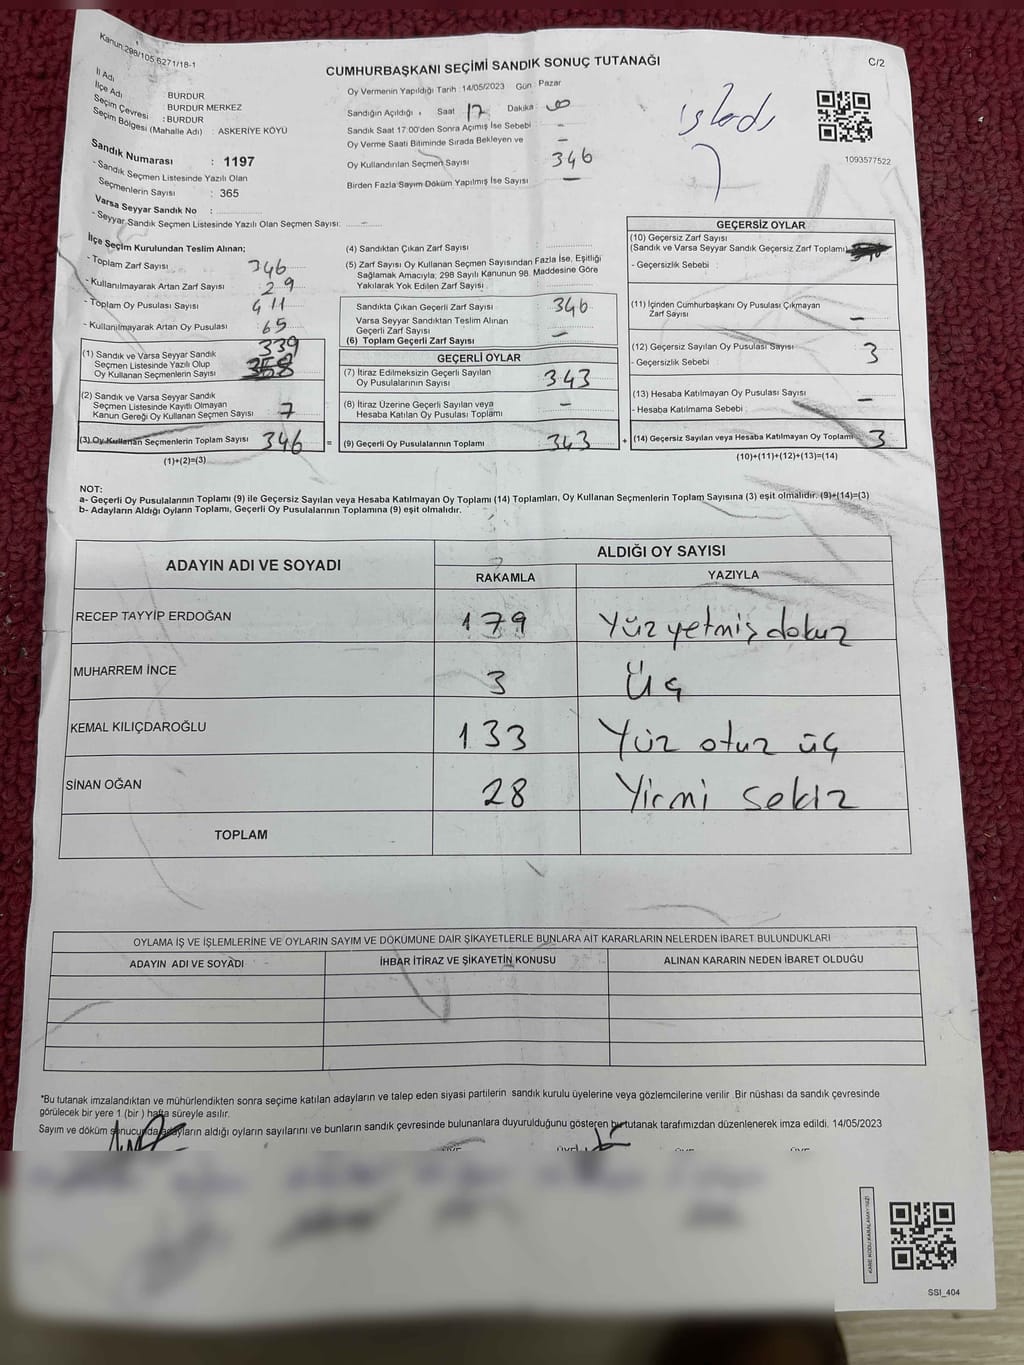 Kanun:298/105 6271/18-1
CUMHURBAŞKANI SEÇİMİ SANDIK SONUÇ TUTANAĞI
C/2
İl Adı BURDUR
İlçe Adı : BURDUR MERKEZ
Seçim Çevresi : BURDUR
Seçim Bölgesi (Mahalle Adı) : ASKERİYE KÖYÜ
Sandık Numarası : 1197
- Sandık Seçmen Listesinde Yazılı Olan
Seçmenlerin Sayısı : 365
Varsa Seyyar Sandık No :
- Seyyar Sandık Seçmen Listesinde Yazılı Olan Seçmen Sayısı: –
Oy Vermenin Yapıldığı Tarih : 14/05/2023 Gün : Pazar
Sandığın Açıldığı : Saat 17 Dakika
Sandık Saat 17.00'den Sonra Açımış İse Sebebi –
Oy Verme Saati Bitiminde Sırada Bekleyen ve
Oy Kullandırılan Seçmen Sayısı 346
Birden Fazla Sayım Döküm Yapılmış İse Sayısı –
işledi
1093577522
İlçe Seçim Kurulundan Teslim Alınan;
- Toplam Zarf Sayısı 346
- Kullanılmayarak Artan Zarf Sayısı 29
- Toplam Oy Pusulası Sayısı 411
- Kullanılmayarak Artan Oy Pusulası 65
(1) Sandık ve Varsa Seyyar Sandık 339
Seçmen Listesinde Yazılı Olup
Oy Kullanan Seçmenlerin Sayısı
(2) Sandık ve Varsa Seyyar Sandık
Seçmen Listesinde Kayıtlı Olmayan
Kanun Gereği Oy Kullanan Seçmen Sayısı 7
(3) Oy Kullanan Seçmenlerin Toplam Sayısı 346 =
(1)+(2)=(3)
(4) Sandıktan Çıkan Zarf Sayısı
(5) Zarf Sayısı Oy Kullanan Seçmen Sayısından Fazla İse, Eşitliği
Sağlamak Amacıyla; 298 Sayılı Kanunun 98. Maddesine Göre
Yakılarak Yok Edilen Zarf Sayısı
Sandıkta Çıkan Geçerli Zarf Sayısı 346
Varsa Seyyar Sandıktan Teslim Alınan
Geçerli Zarf Sayısı –
(6) Toplam Geçerli Zarf Sayısı
GEÇERLİ OYLAR
(7) İtiraz Edilmeksizin Geçerli Sayılan
Oy Pusulalarının Sayısı 343
(8) İtiraz Üzerine Geçerli Sayılan veya
Hesaba Katılan Oy Pusulası Toplamı –
(9) Geçerli Oy Pusulalarının Toplamı 343 +
GEÇERSİZ OYLAR
(10) Geçersiz Zarf Sayısı
(Sandık ve Varsa Seyyar Sandık Geçersiz Zarf Toplamı)
- Geçersizlik Sebebi
(11) İçinden Cumhurbaşkanı Oy Pusulası Çıkmayan
Zarf Sayısı –
(12) Geçersiz Sayılan Oy Pusulası Sayısı 3
- Geçersizlik Sebebi
(13) Hesaba Katılmayan Oy Pusulası Sayısı –
- Hesaba Katılmama Sebebi
(14) Geçersiz Sayılan veya Hesaba Katılmayan Oy Toplamı 3
(10)+(11)+(12)+(13)=(14)
NOT:
a- Geçerli Oy Pusulalarının Toplamı (9) ile Geçersiz Sayılan veya Hesaba Katılmayan Oy Toplamı (14) Toplamları, Oy Kullanan Seçmenlerin Toplam Sayısına (3) eşit olmalıdır. (9)+(14)=(3)
b- Adayların Aldığı Oyların Toplamı, Geçerli Oy Pusulalarının Toplamına (9) eşit olmalıdır.
ADAYIN ADI VE SOYADI ALDIĞI OY SAYISI
RAKAMLA YAZIYLA
RECEP TAYYİP ERDOĞAN 179 Yüz yetmiş dokuz
MUHARREM İNCE 3 Üç
KEMAL KILIÇDAROĞLU 133 Yüz otuz üç
SİNAN OĞAN 28 Yirmi sekiz
TOPLAM
OYLAMA İŞ VE İŞLEMLERİNE VE OYLARIN SAYIM VE DÖKÜMÜNE DAİR ŞİKAYETLERLE BUNLARA AİT KARARLARIN NELERDEN İBARET BULUNDUKLARI
ADAYIN ADI VE SOYADI İHBAR İTİRAZ VE ŞİKAYETİN KONUSU ALINAN KARARIN NEDEN İBARET OLDUĞU
*Bu tutanak imzalandıktan ve mühürlendikten sonra seçime katılan adayların ve talep eden siyasi partilerin sandık kurulu üyelerine veya gözlemcilerine verilir .Bir nüshası da sandık çevresinde
görülecek bir yere 1 (bir ) hafta süreyle asılır.
Sayım ve döküm sonucunda adayların aldığı oyların sayılarını ve bunların sandık çevresinde bulunanlara duyurulduğunu gösteren bu tutanak tarafımızdan düzenlenerek imza edildi. 14/05/2023
SSI_404